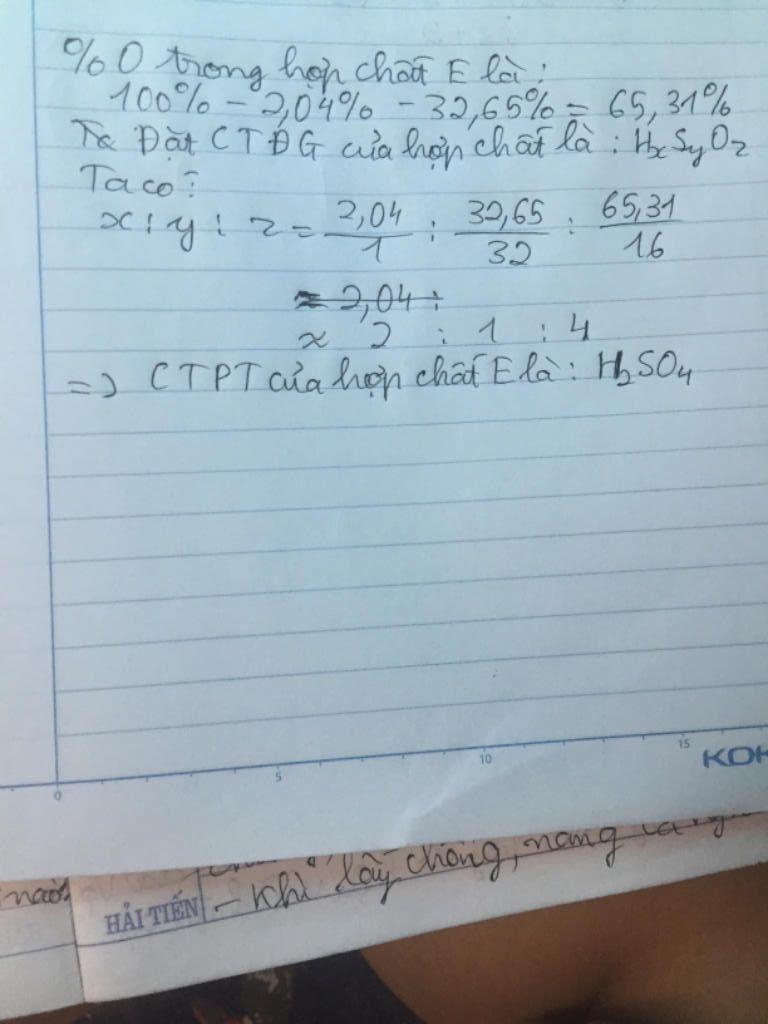 %O trong hợp chất E là:
100% - 2,04% - 32,65% = 65,31%
Ta Đặt CTĐG của hợp chất là: HxSyOz
Ta có:
x : y : z = 2,04/1 : 32,65/32 : 65,31/16
≈ 2,04 :
≈ 2 : 1 : 4
=> CTPT của hợp chất E là: H2SO4
0 5 10 15 KOK
nào
HẢI TIẾN - Khí lấy chồng, nàng